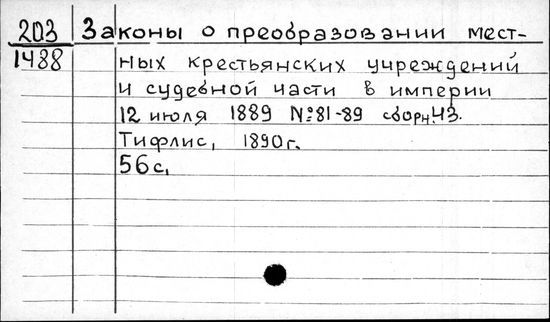 203 Законы о преобразовании мест-
1488 ных крестьянских учреждений
и судебной части в империи
12 июля 1889 №81-89 сборн. 43.
Тифлис, 1890г.
56с.